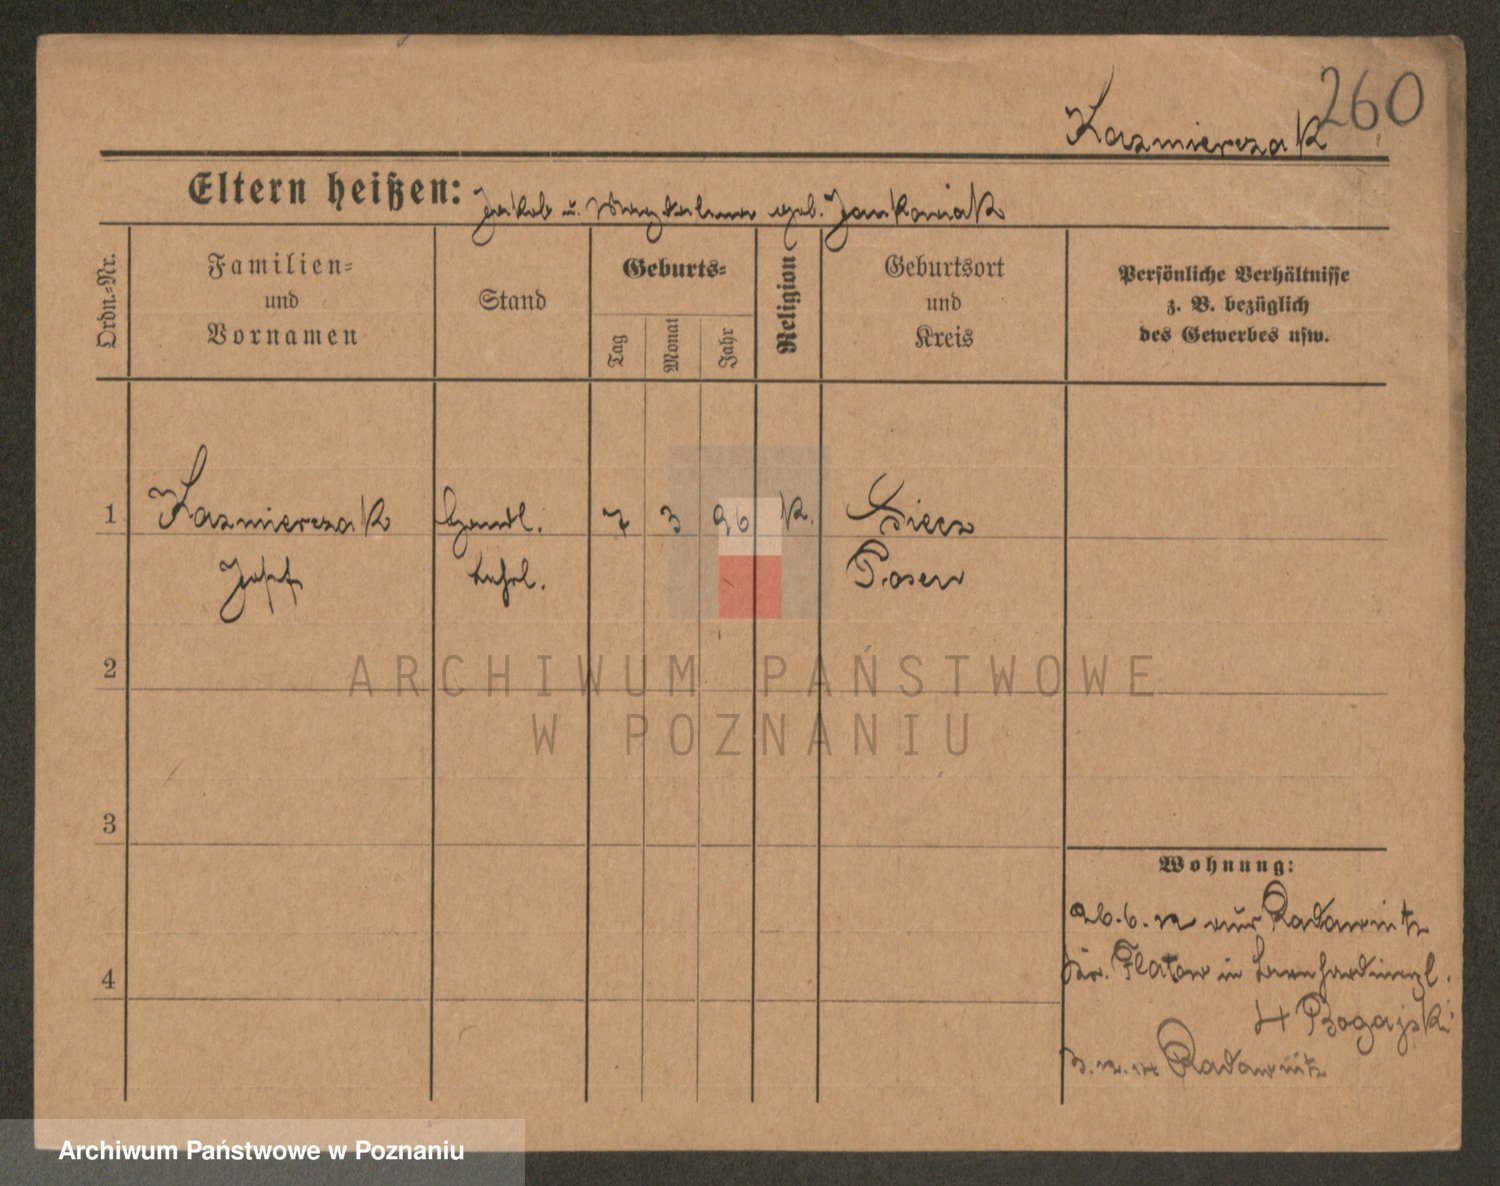 260
Kazmierczak
Eltern heißen: Jakob u. Magdalena geb. Jankowiak
Ordn.=Nr.
Familien=
und
Vornamen
Stand
Geburts=
Tag
Monat
Jahr
Religion
Geburtsort
und
Kreis
Persönliche Verhältnisse
z. B. bezüglich
des Gewerbes usw.
1
Kazmierczak
Josef
Handl.
Lehrl.
7
3
96
k.
Posen
2
ARCHIWUM PAŃSTWOWE
W POZNANIU
3
4
Wohnung:
26.6. Radawnitz
Kr. Flatow in Bernhardinerpl.
4 Bogajski
Radawnitz
Archiwum Państwowe w Poznaniu